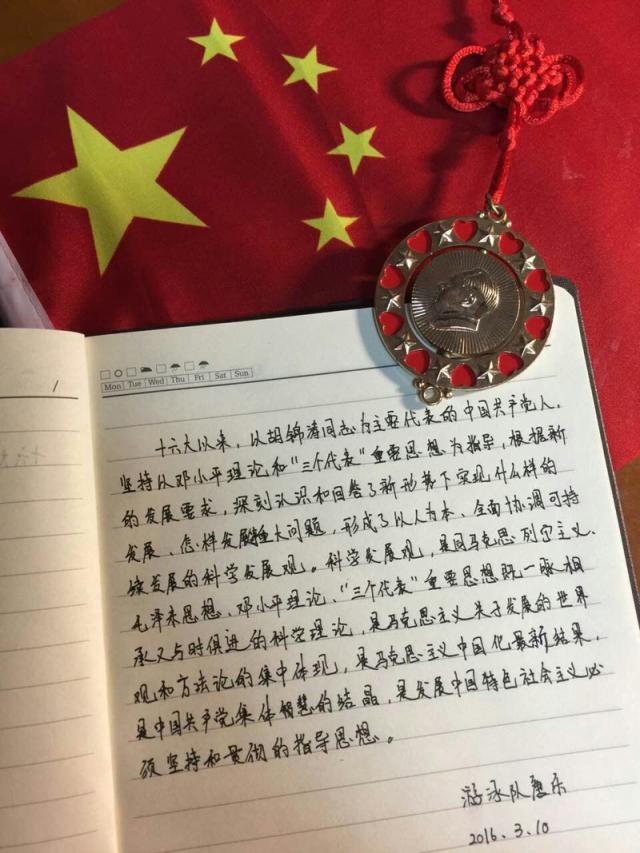 /
Mon Tue Wed Thu Fri Sat Sun
十六大以来，以胡锦涛同志为主要代表的中国共产党人，
坚持以邓小平理论和“三个代表”重要思想为指导，根据新
的发展要求，深刻认识和回答了新形势下实现什么样的
发展、怎样发展等重大问题，形成了以人为本、全面协调可持
续发展的科学发展观。科学发展观，是同马克思列宁主义、
毛泽东思想、邓小平理论、“三个代表”重要思想既一脉相
承又与时俱进的科学理论，是马克思主义关于发展的世界
观和方法论的集中体现，是马克思主义中国化最新结果，
是中国共产党集体智慧的结晶，是发展中国特色社会主义必
须坚持和贯彻的指导思想。
游泳队 乐
2016.3.10